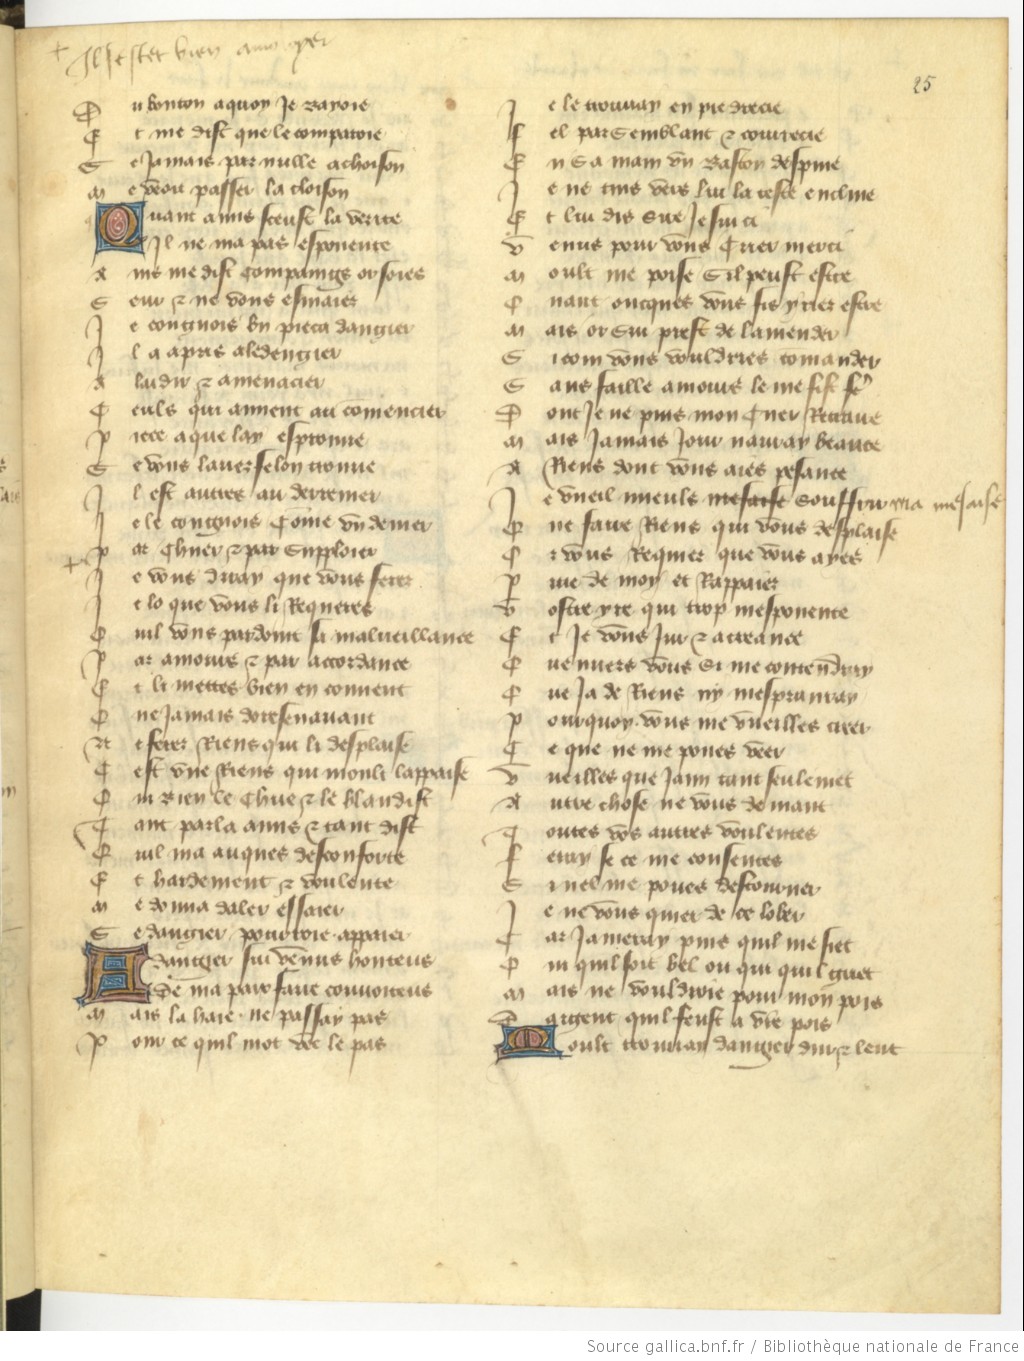 Il se scet bien amoyer
25
Du bouton a quoy Je bayoie
Et me dist que le comparoie
Se Jamais par nulle achoison
Me veoit passer la cloison
Quant amis sceust la verite
Qil ne ma pas esponente
Ains me dist Compaings or soies
Seur & ne vous esmaies
Je congnois bn pieca dangier
Il a apris a ledengier
A laidir & a menacier
Ceuls qui aiment au comencier
Piece a que lay esprouue
Se vous lauez felon trouue
Il est autres au derrenier
Je le congnois Come vn denier
Par Chuer & par Supploier
Je vous diray que vous ferez
Je lo que vous li Requeres
Quil vous pardoint sa malueillance
Par amours & par accordance
Et li mettes bien en conuent
Que Jamais dores en auant
Ne feres Riens qui li desplaise
Cest vne Riens qui moult lappaise
Qui bien le Chue & le blandist
Tant parla amis & tant dist
Quil ma auques desconforte
Et hardement & voulente
Me donna daler essaier
Se dangier pourroie appaier
A dangier sui venus honteus
De ma paix faire conuoiteus
Mais la haie ne passay pas
Pour ce quil mot vee le pas
Je le trouuay en pie drecie
Fel par Semblant & courrecie
En Sa main vn baston despine
Je ne tins vers lui la teste encline
Et lui dis Sire Je sui ci
Venus pour vous Crier merci
Moult me poise Sil peust estre
Quant oncques vous fis yrier estre
Mais or Sui prest de lamender
Si com vous vouldries comander
Sans faille amours le me fist fere
Dont Je ne puis mon Cuer Retraire
Mais Jamais Jour nauray beance
A Riens dont vous aies pesance
Je vueil mieuls mesaise Souffrir ma mesaise
Que faire Riens qui vous desplaise
Or vous Requier que vous ayes
Pitie de moy et Rappaies
Vostre yre qui trop mesponente
Et Je vous Jur & acreante
Que uers vous Si me contendray
Que Ja de Riens ny mesprenray
Pourquoy vous me vueilles greer
Ce que ne me poues veer
Vueilles que Jaim tant seulemet
Autre chose ne vous demant
Toutes vos autres voulentes
Feray se ce me consentes
Si nel me poues destourner
Je ne vous quier de ce lober
Car Jameray puis quil me siet
Qui quil soit bel ou qui quil griet
Mais ne vouldroie pour mon pois
Dargent quil feust a vre pois
Moult trouuay dangier dur & lent
Source gallica.bnf.fr / Bibliothèque nationale de France